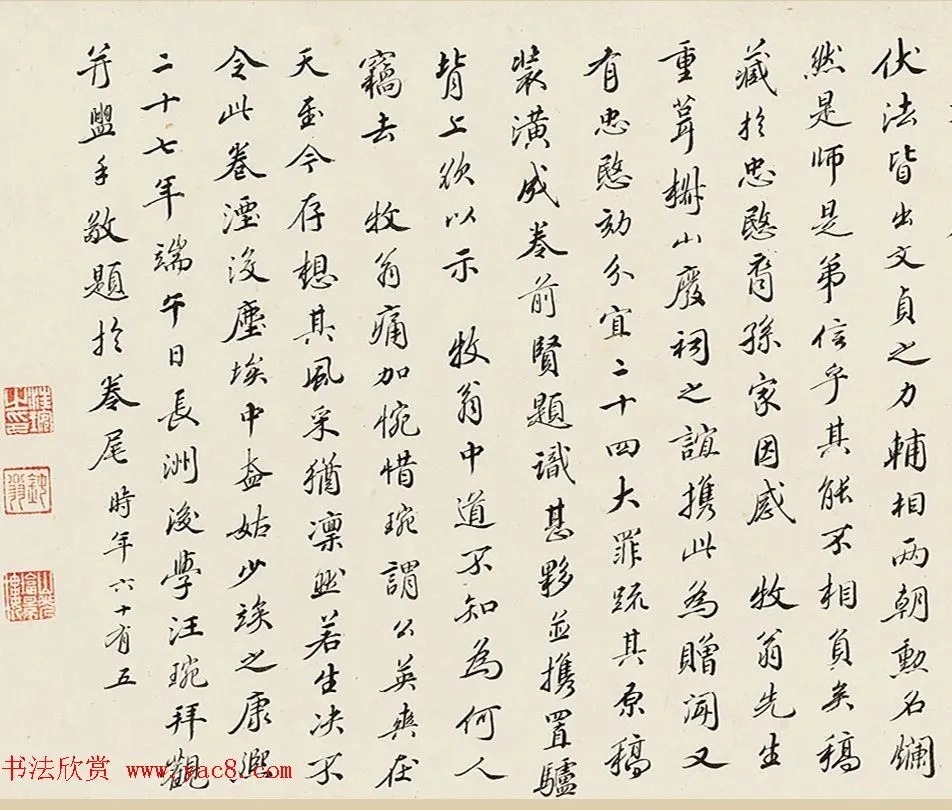 伏法皆出文貞之力輔相两朝勲名爛
然是师是弟信乎其能不相負矣稿
藏於忠愍裔孫家因感 牧翁先生
重葺椒山廢祠之誼携此為贈闻又
有忠愍劾分宜二十四大罪疏其原稿
装潢成卷前賢題識甚夥並携置驢
背上欲以示 牧翁中道不知為何人
竊去 牧翁痛加惋惜琬謂公英爽在
天至今存想其風采猶凛然若生决不
令此卷湮没塵埃中盍姑少俟之康熙
二十七年端午日長洲後學汪琬拜觀
并盥手敬題於卷尾時年六十有五
汪琬之印
鈍翁
书法欣赏 www.yac8.com